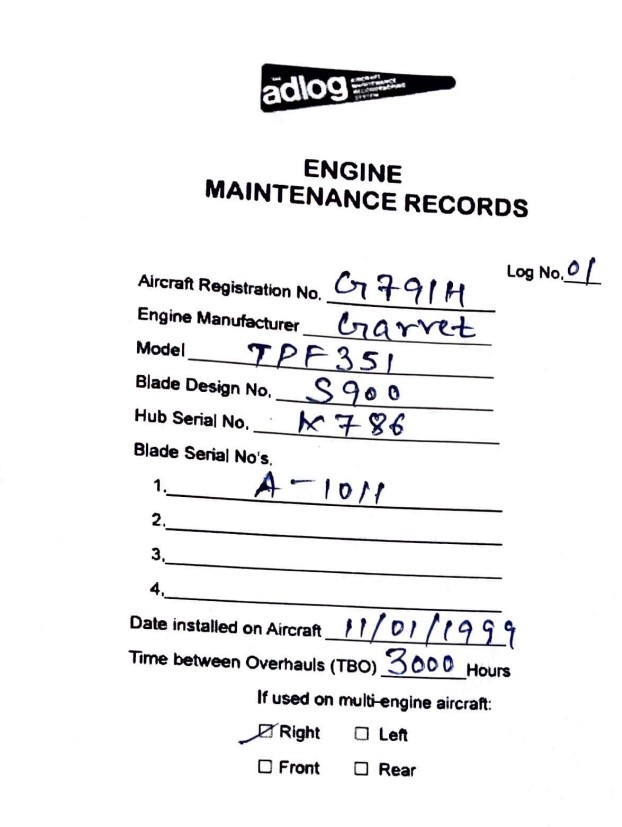 THE
adlog AIRCRAFT MAINTENANCE RECORDKEEPING SYSTEM
ENGINE
MAINTENANCE RECORDS
Log No. 01
Aircraft Registration No. G791H
Engine Manufacturer Garvet
Model TPF351
Blade Design No. S900
Hub Serial No. K786
Blade Serial No's.
1. A-1011
2.
3.
4.
Date installed on Aircraft 11/01/1999
Time between Overhauls (TBO) 3000 Hours
If used on multi-engine aircraft:
☑ Right ☐ Left
☐ Front ☐ Rear